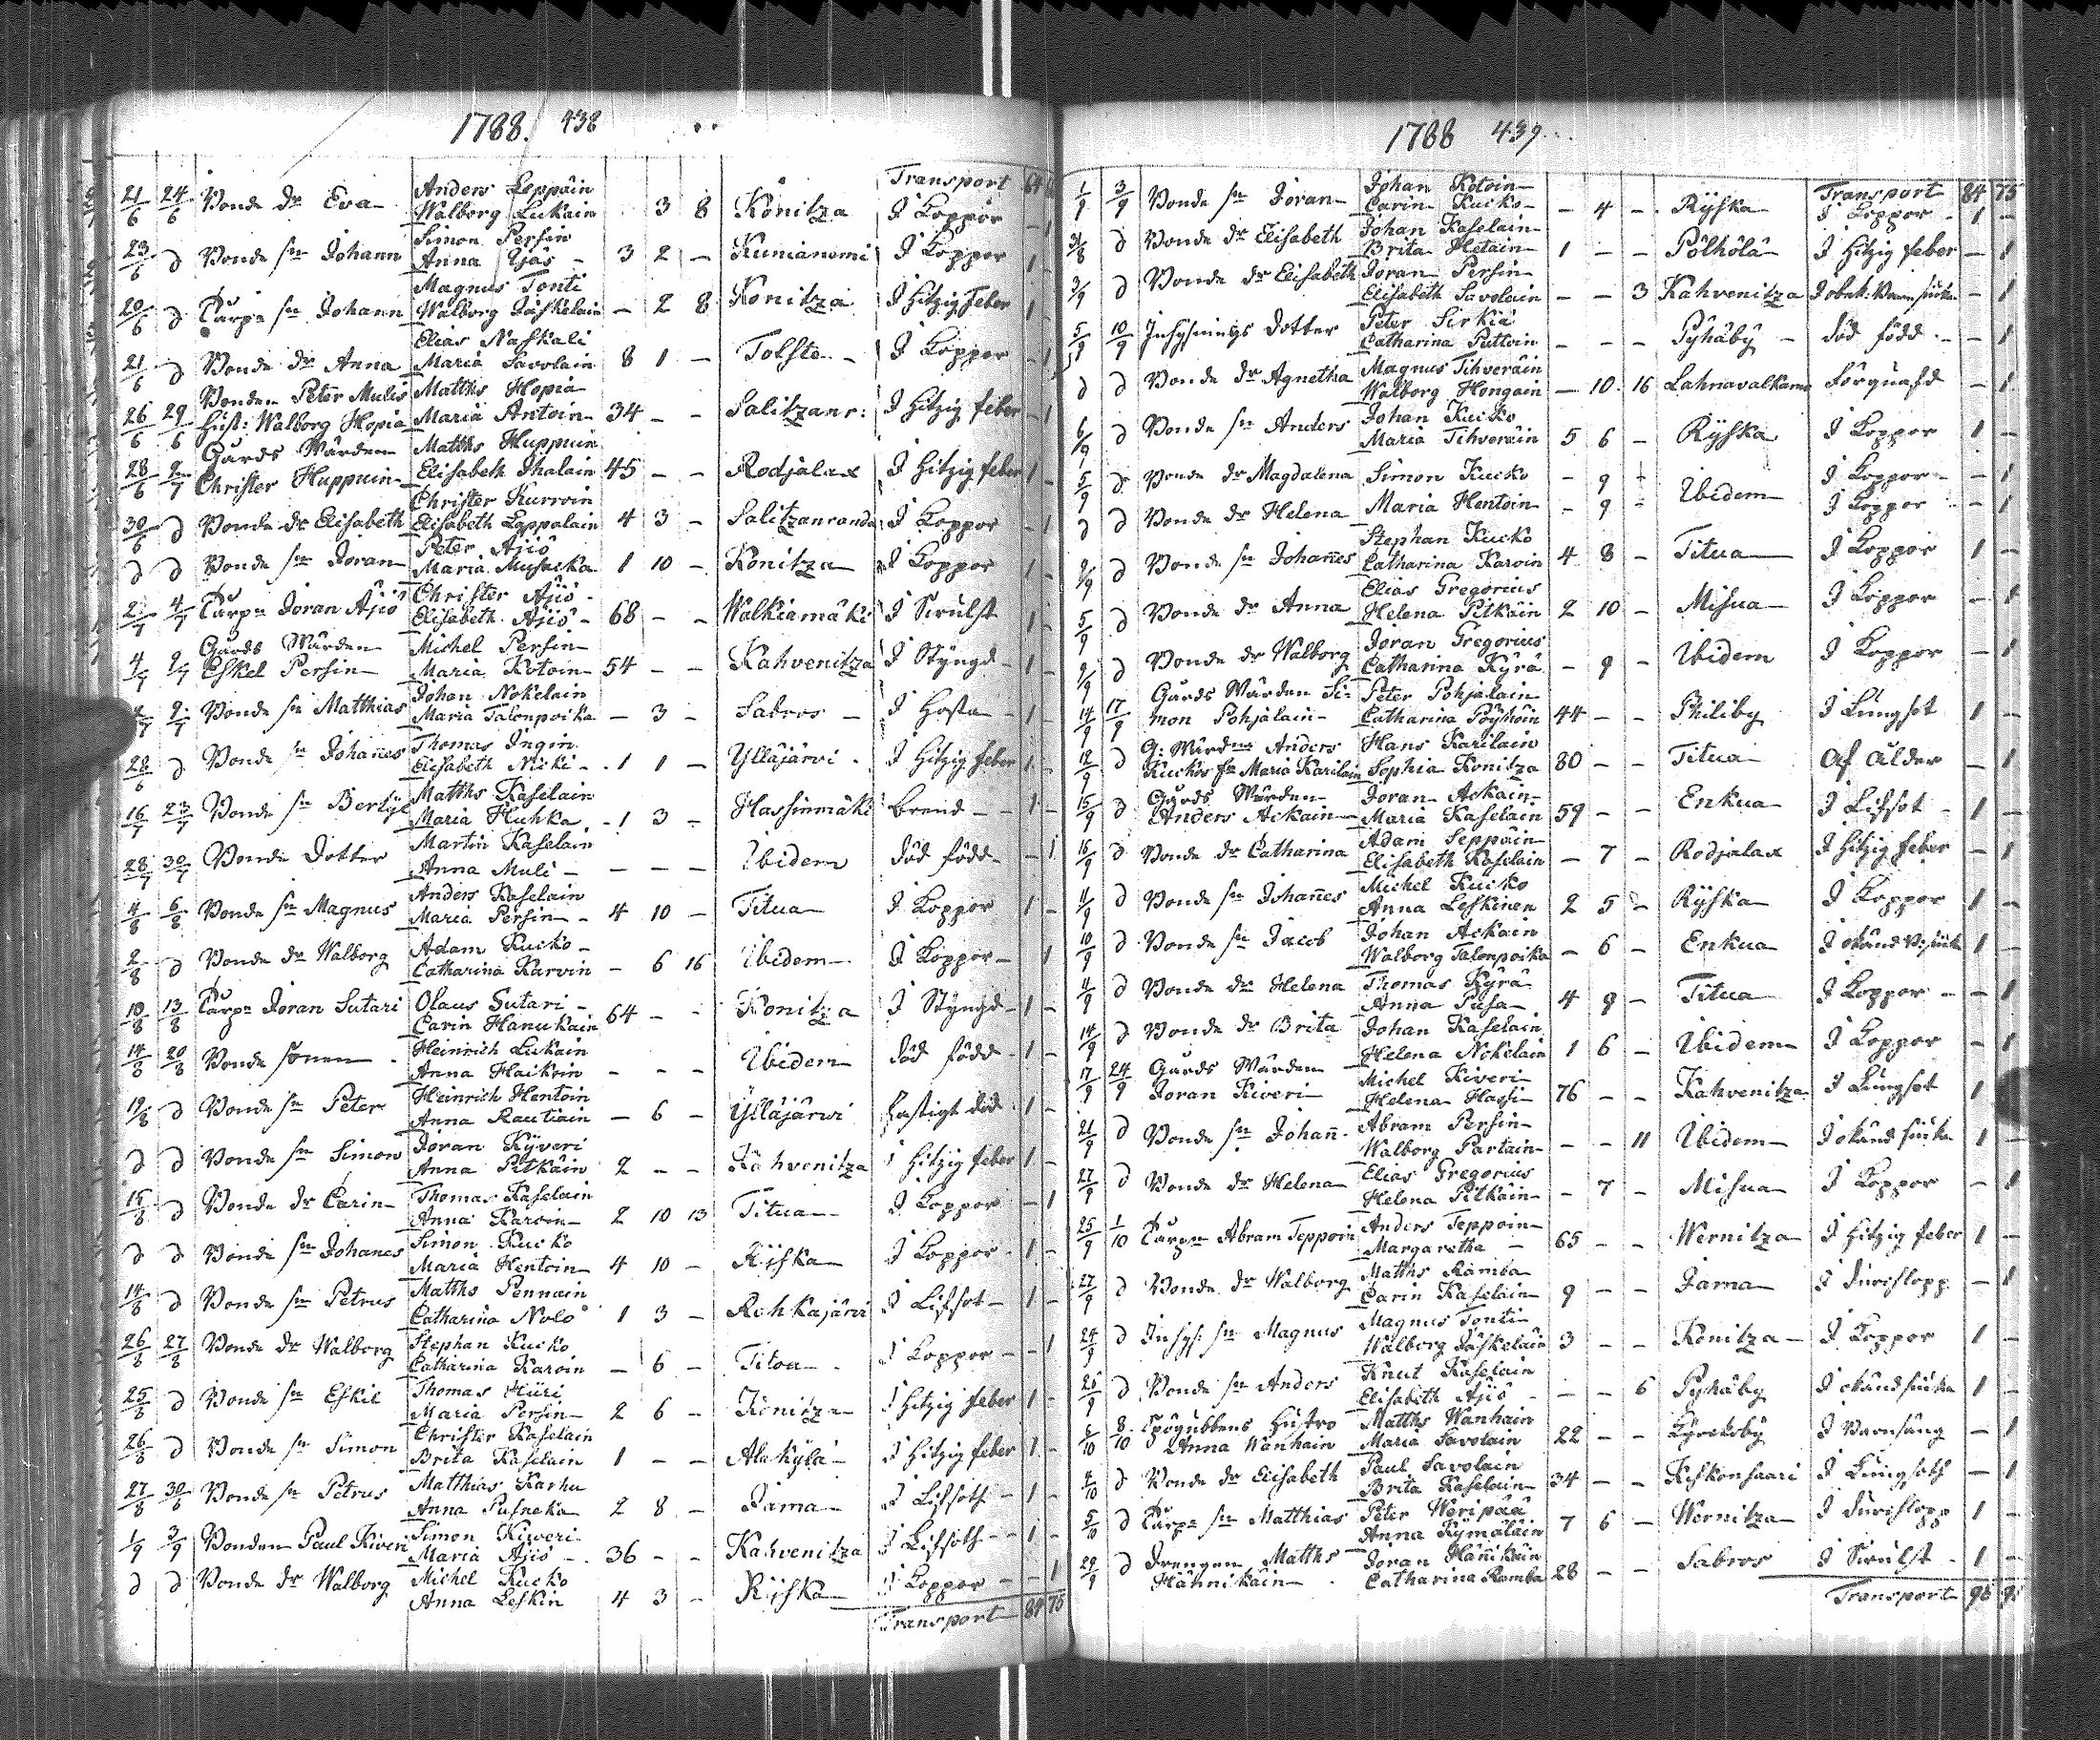 1788. 438
Transport 64
21/6 24/6 Bonde dr Eva Anders Leppäin
Walborg Lukain 3 8 Konitza I Koppor - 1
23/6 d Bonde sn Johann Simon Persin
Anna Äjäs - 3 2 - Kunianemi I Koppor 1 -
20/6 d Torpe sn Johann Magnus Tonti
Walborg Jäskelain - 2 8 Konitza I Hitzig feber 1 -
21/6 d Bonde dr Anna Elias Naskali
Maria Savolain 8 1 - Tolste - I Koppor - 1
26/6 29/6 Bonden Peter Mulis Matths Hopia
Hust: Walborg Hopia Maria Antoin 34 - - Salitzanr: I Hitzig feber - 1
28/6 2/7 Gårds Wärden Matths Huppuin
Christer Huppuin Elisabeth Ihalain 45 - - Rodjalax I Hitzig feber 1 -
30/6 d Bonde dr Elisabeth Christer Kurvoin
Elisabeth Lappalain 4 3 - Salitzanranda I Koppor - 1
d d Bonde sn Joran Peter Äjiö
Maria Musacka 1 10 - Konitza I Koppor 1 -
2/7 4/7 Torpn Joran Äjiö Christer Äjiö -
Elisabeth Äjiö - 68 - - Walkiamäki I Swulst 1 -
4/7 9/7 Gårds Wärden Michel Persin
Eskel Persin Maria Kotoin 54 - - Kahvenitza I Styngd 1 -
9/7 Bonde sn Matthias Johan Nokelain
Maria Talonpoika - 3 - Sabros - I Hosta - 1 -
28/6 d Bonde sn Johanes Thomas Ingin
Elisabeth Nicki - 1 1 - Ylläjärvi - I Hitzig feber 1 -
16/7 23/7 Bonde sn Bertil Matths Kaselain
Maria Huhka - 1 3 - Hassinmäki brend - - 1 -
28/7 30/7 Bonde Dotter Martin Kaselain
Anna Muli - - - - Ibidem död född - 1
4/8 6/8 Bonde sn Magnus Anders Kaselain
Maria Persin - 4 10 - Titua I Koppor 1 -
2/8 d Bonde dr Walborg Adam Kucko -
Catharina Karvin - 6 16 Ibidem I Koppor - 1
10/8 13/8 Torpn Joran Sutari Olaus Sutari -
Carin Hanukain 64 - - Konitza I Styngd 1 -
14/8 20/8 Bonde sonen - Heinrich Lukain
Anna Haikoin - - - Ibidem död född 1 -
19/8 d Bonde sn Peter Heinrich Hentoin
Anna Rautiain - 6 - Ylläjärvi hastigt död 1 -
d d Bonde sn Simon Joran Kyveri
Anna Pitkäin 2 - - Kahvenitza I Hitzig feber 1 -
15/8 d Bonde dr Carin Thomas Kaselain
Anna Karvin 2 10 13 Titua I Koppor - 1
d d Bonde sn Johanes Simon Kucko
Maria Hentoin 4 10 - Ryska I Koppor 1 -
14/8 d Bonde sn Petrus Matths Pennain
Catharina Nolo 1 3 - Rohkajärvi I Lifsot 1 -
26/8 27/8 Bonde dr Walborg Stephan Kucko
Catharina Karoin - 6 - Titoa - I Koppor - 1
25/8 d Bonde sn Eskil Thomas Hüri
Maria Persin 2 6 - Konitza I Hitzig feber 1 -
26/8 d Bonde sn Simon Christer Kaselain
Brita Kaselain 1 - - Alakylä I Hitzig feber 1 -
27/8 30/8 Bonde sn Petrus Matthias Karhu
Anna Pusneka 2 8 - Jama I Lifsoth 1 -
1/9 3/9 Bonden Paul Kiveri Simon Kiweri
Maria Äjiö - 36 - - Kahvenitza I Lifsoth 1 -
d d Bonde dr Walborg Michel Kucko
Anna Leskin 4 3 - Ryska I Koppor - 1
Transport 84 75
1788 439
Transport 84 75
1/9 3/9 Bonde sn Joran Johan Kotoin
Carin Kucko - 4 - Ryska I Koppor - 1 -
31/8 d Bonde dr Elisabeth Johan Kaselain
Brita Hetain 1 - - Pölhölä I Hitzig feber - 1
3/9 d Bonde dr Elisabeth Joran Persin
Elisabeth Savolain - - 3 Kahvenitza I obek: Barnsiuka - 1
5/9 10/9 Inhysnings Dotter Peter Sirkiä
Catharina Puttoin - - - Pyhäby - död född - 1
d d Bonde dr Agnetha Magnus Tihveräin
Walborg Hongain - 10 16 Lahnavalkama förqvafd - 1
6/9 d Bonde sn Anders Johan Kucko
Maria Tihveräin 5 6 - Ryska I Koppor 1 -
5/9 d Bonde dr Magdalena Simon Kucko - 9 - I Koppor - 1
d d Bonde dr Helena Maria Hentoin - 9 - Ibidem I Koppor - 1
9/9 d Bonde sn Johanes Stephan Kucko
Catharina Karoin 4 8 - Titua I Koppor 1 -
5/9 d Bonde dr Anna Elias Gregorius
Helena Pitkäin 2 10 - Misua I Koppor - 1
9/9 d Bonde dr Walborg Joran Gregorius
Catharina Kyrä - 9 - Ibidem I Koppor - 1
14/9 17/9 Gårds Wärden Si- Peter Pohjalain
mon Pohjalain Catharina Pöyhöin 44 - - Philiby I Lungsot 1 -
12/9 d G: Wärdns Anders Hans Karilain
Kuckos fr Maria Karilain Sophia Konitza 80 - - Titua Af ålder - 1
15/9 d Gårds Wärden Joran Ackain
Anders Ackain Maria Kaselain 59 - - Enkua I Lifsot 1 -
16/9 d Bonde dr Catharina Adam Seppäin
Elisabeth Kaselain - 7 - Rodjalax I Hitzig feber - 1
11/9 d Bonde sn Johanes Michel Kucko
Anna Leskinen 2 5 - Ryska I Koppor 1 -
10/9 d Bonde sn Jacob Johan Ackain
Walborg Talonpoika - 6 - Enkua I okänd B:siuka 1 -
11/9 d Bonde dr Helena Thomas Kyrä
Anna Pusa 4 9 - Titua I Koppor - 1
14/9 d Bonde dr Brita Johan Kaselain
Helena Nokelain 1 6 - Ibidem I Koppor - 1
17/9 24/9 Gårds Wärden Michel Kiveri
Joran Kiveri Helena Hassi 76 - - Kahvenitza I Lungsot 1
21/9 d Bonde sn Johan Abram Persin
Walborg Partain - - 11 Ibidem I okänd siuka 1 -
27/9 d Bonde dr Helena Elias Gregorius
Helena Pitkäin - 7 - Misua I Koppor - 1
25/9 1/10 Torpn Abram Teppoin Anders Teppoin
Margaretha - 65 - - Wernitza I Hitzig feber 1 -
27/9 d Bonde dr Walborg Matths Ramba
Carin Kaselain 9 - - Jama I Durchlopp - 1
24/9 d Inhys: sn Magnus Magnus Tonti
Walborg Jäskelain 3 - - Konitza I Koppor 1 -
26/9 d Bonde sn Anders Knut Kaselain
Elisabeth Äjiö - - - 6 Pyhäby I okänd siuka 1 -
6/10 8/10 Spögubbens Hustro Matths Wanhain
Anna Wanhain Maria Savolain 22 - - Kyreksby I Barnsäng - 1
4/10 d Bonde dr Elisabeth Paul Savolain
Brita Kaselain 34 - - Kiskonsaari I Lungsoth - 1
5/10 d Torpe sn Matthias Peter Weripää
Anna Kymäläin 7 6 - Wernitza I Durchlopp 1 -
29/9 d Drengen Matths Joran Hännikäin
Hännikäin - Catharina Ramba 28 - - Sabros I Swulst 1 -
Transport 98